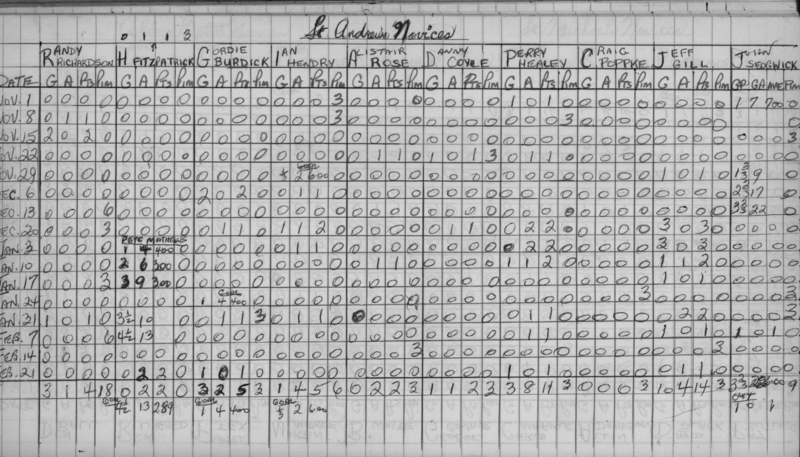 0 1 1 3 St Andrews Novices
RANDY GORDIE IAN ALISTAIR DANNY PERRY CRAIG JEFF
RICHARDSON H FITZPATRICK BURDICK HENDRY ROSE COYLE HEALEY POPPKE GILL SEDGWICK
DATE G A Pts Pim G A Pts Pim G A Pts Pim G A Pts Pim G A Pts Pim G A Pts Pim G A Pts Pim G A Pts Pim G A Pts Pim GP GA AVE Pim
NOV. 1 0 0 0 0 0 0 0 0 0 0 0 0 0 0 0 3 0 0 0 0 0 0 0 0 1 0 1 0 0 0 0 0 0 0 0 0 1 7 700 0
NOV. 8 0 1 1 0 0 0 0 0 0 0 0 0 0 0 0 3 0 0 0 0 0 0 0 0 0 0 0 3 0 0 0 0 0 0 0 0
NOV. 15 2 0 2 0 0 0 0 0 0 0 0 0 0 0 0 0 0 0 0 0 0 0 0 0 0 0 0 0 0 0 0 0 0 0 0 0 0 0 0 3
NOV. 22 0 0 0 0 0 0 0 0 0 0 0 0 0 0 0 0 0 1 1 0 1 0 1 3 0 1 1 0 0 0 0 0 0 0 0 0 0 0 0 0
NOV. 29 0 0 0 0 0 0 0 0 0 0 0 0 GOAL 2 600 0 0 0 0 0 0 0 0 0 0 0 0 0 0 0 0 1 0 1 0 9
DEC. 6 0 0 0 0 0 0 0 0 2 0 2 0 0 1 1 0 0 0 0 0 0 0 0 0 0 0 0 0 0 0 0 0 0 0 0 0 17
DEC. 13 0 0 0 6 0 0 0 0 0 0 0 0 0 0 0 0 0 0 0 0 0 0 0 0 0 0 0 0 0 0 0 0 0 0 0 0 22
DEC. 20 0 0 0 3 0 0 0 0 0 1 1 0 1 1 2 0 0 0 0 0 0 1 1 0 0 2 2 0 0 0 0 0 3 0 3 0 0 0 0 0
JAN. 3 0 0 0 0 PETE MATHEWS 1 4 400 0 0 0 0 0 1 1 0 0 0 0 0 0 0 0 0 0 2 2 0 0 0 0 0 3 0 3 0 0 0 0 0
JAN. 10 0 0 0 0 2 6 300 0 0 0 0 0 0 0 0 0 1 1 0 0 0 0 0 1 1 2 0 0 0 0 0 1 1 2 0 0 0 0 0
JAN. 17 0 0 0 3 3 9 300 0 0 0 0 0 0 0 0 0 0 0 0 0 0 0 0 0 0 0 0 0 0 0 0 1 0 1 0 0 0 0
JAN. 24 0 0 0 0 0 0 0 0 GOAL 1 4 400 0 0 0 0 0 0 0 0 0 0 0 0 0 0 0 0 0 0 0 3 0 0 0 0 0 0 0 3
1 0 1 0 3½ 10 0 1 1 3 0 1 1 0 0 0 0 0 0 0 0 0 0 0 0 0 0 0 0 0 0 2 2 0 0 0 0 3
FEB. 7 0 0 0 6 4½ 13 0 0 0 0 0 0 0 0 0 0 0 0 0 0 0 0 0 1 1 0 0 0 0 0 1 0 1 0 1 0 1 0
FEB. 14 0 0 0 0 0 0 0 0 0 0 0 0 0 0 0 0 0 0 0 3 0 0 0 0 0 0 0 0 0 0 0 0 0 0 0 3 0 0 0 0
FEB. 21 0 0 0 0 0 2 2 0 1 0 1 0 0 0 0 0 0 0 0 0 0 0 0 0 1 0 1 0 0 0 0 0 0 1 1 0 0 0 0 0
3 1 4 18 0 2 2 0 3 2 5 3 1 4 5 6 0 2 2 3 1 1 2 3 3 8 11 3 0 0 0 3 10 4 14 3 9
GOAL 4½ 13 289 GOAL 1 4 400 GOAL 2 600